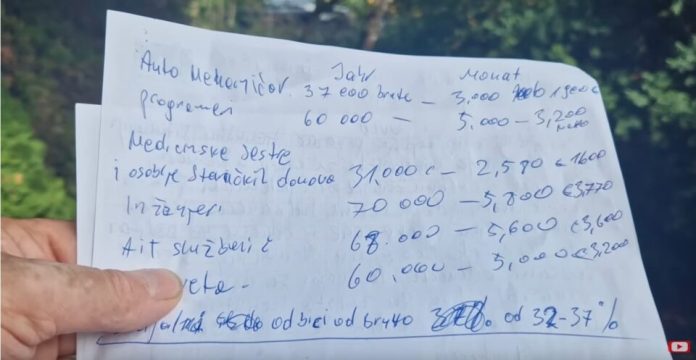 Jahr Monat
Auto Mehaničar 37 000 bruto - 3,000 1900 €
i programeri 60 000 - 5,000 - 3,200 netto
Medicinske sestre
i osoblje staračkih domova 31,000 € - 2,580 € 1600
Inžinjeri 70 000 - 5,800 € 3,770
službenič 68.000 - 5,600 € 3,600
60.000 - 5,000 € 3,200
odbici od bruto od 32-37%